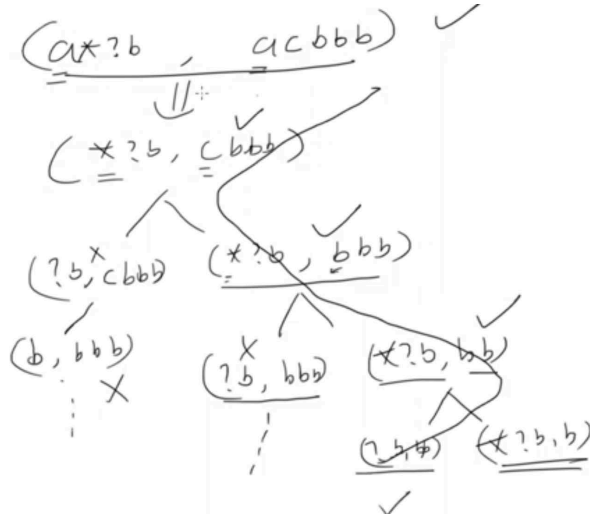 (a*?b , acbbb)
(*?b, cbbb)
(?b, cbbb) (*?b, bbb)
(b, bbb) (?b, bbb) (*?b, bb)
(?b, bb) (*?b, b)